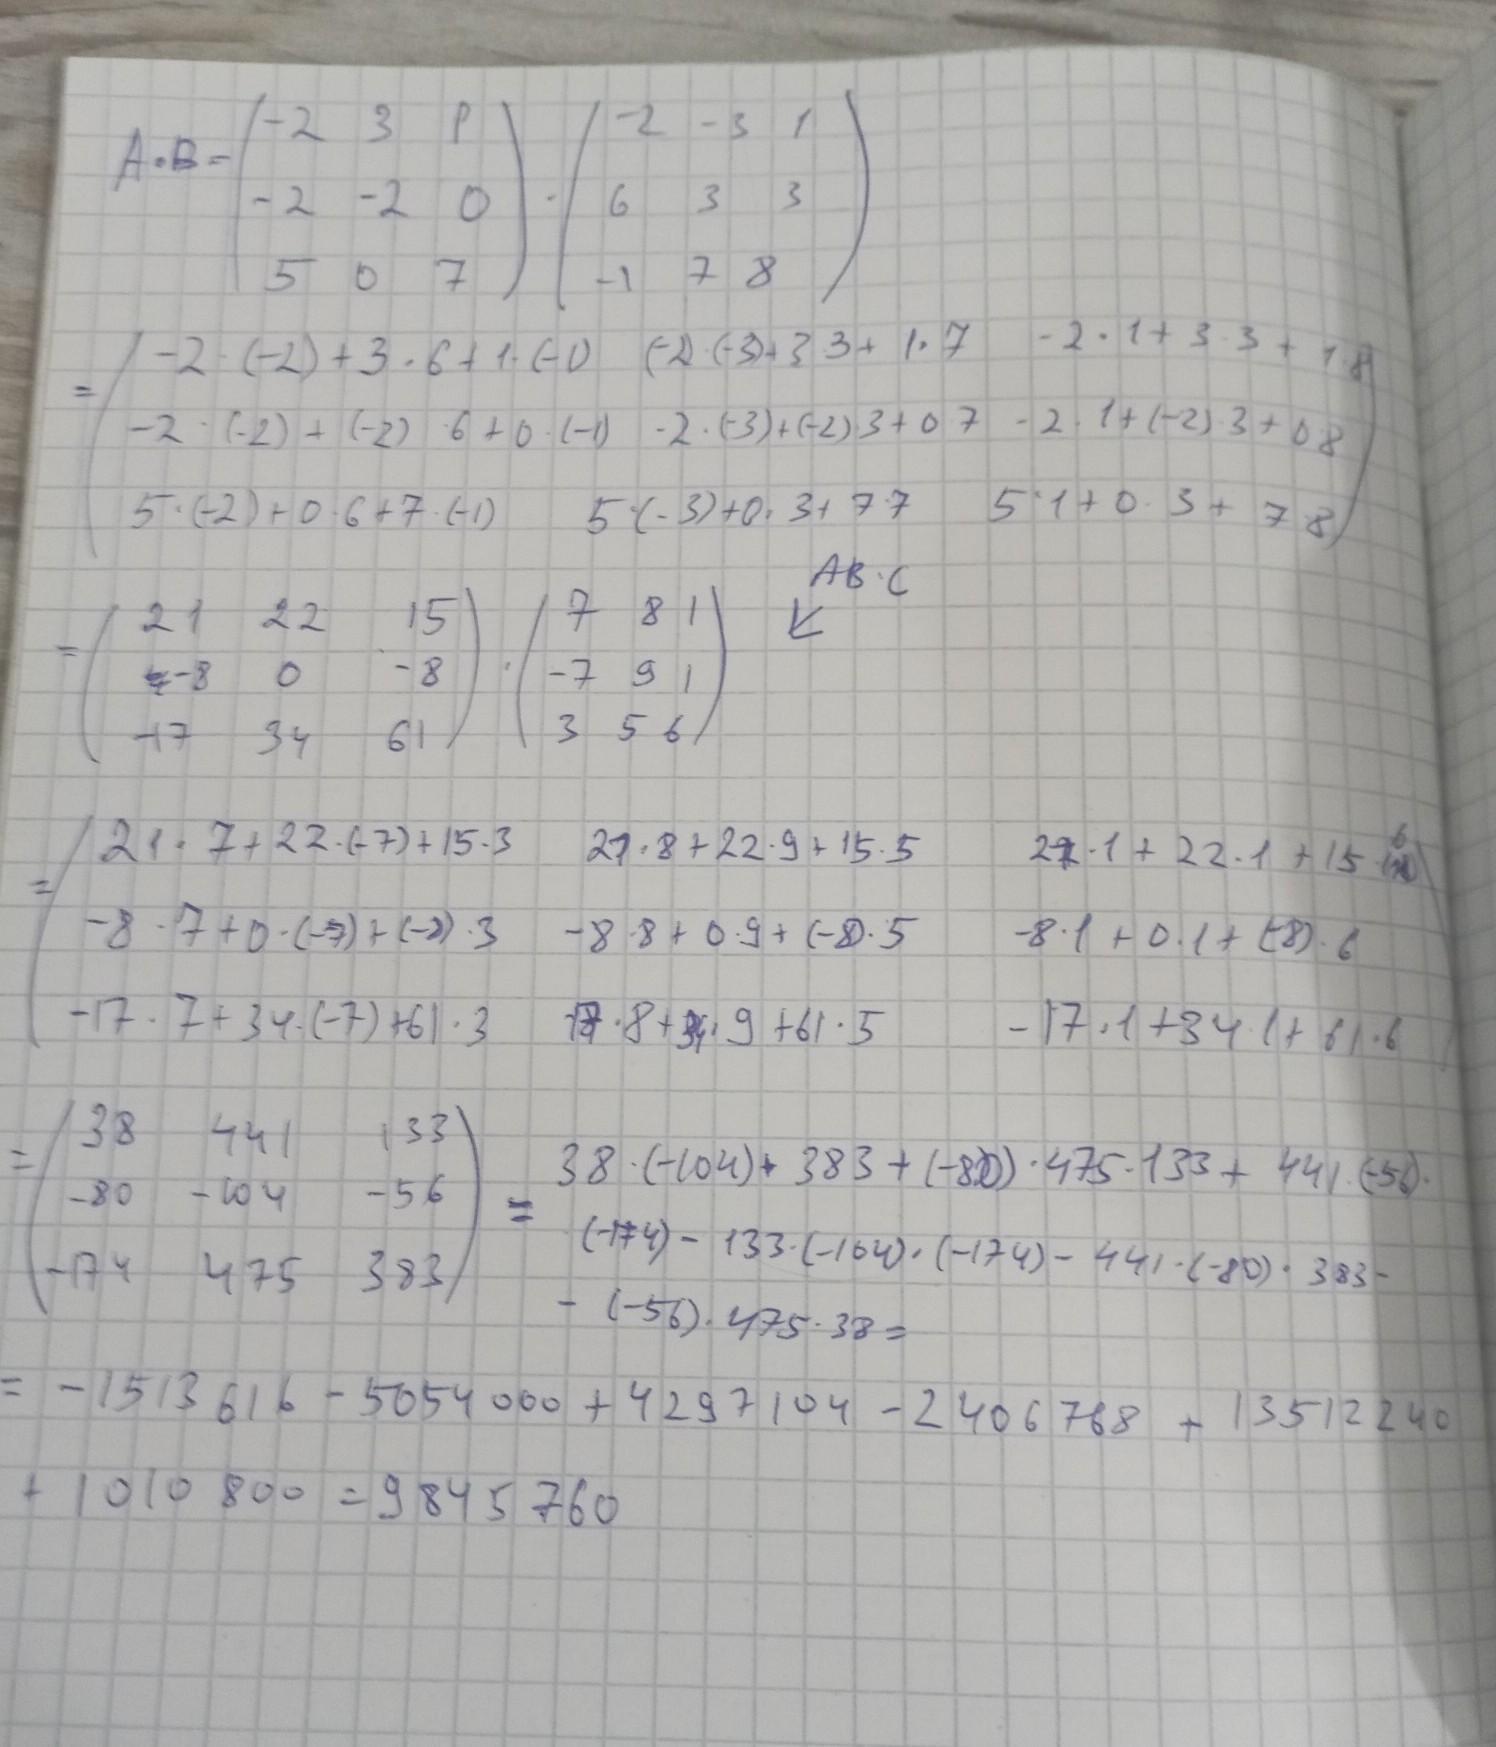 A·B= ( -2 3 1 ) · ( -2 -3 1 )
( -2 -2 0 ) ( 6 3 3 )
( 5 0 7 ) ( -1 7 8 )
= ( -2·(-2)+3·6+1·(-1) (-2)·(-3)+3·3+1·7 -2·1+3·3+1·8 )
( -2·(-2)+(-2)·6+0·(-1) -2·(-3)+(-2)·3+0 7 -2·1+(-2)·3+0 8 )
( 5·(-2)+0·6+7·(-1) 5·(-3)+0·3+7 7 5·1+0·3+7 8 )
AB·C
= ( 21 22 15 ) · ( 7 8 1 ) ↙
( -8 0 -8 ) ( -7 9 1 )
( -17 34 61 ) ( 3 5 6 )
= ( 21·7+22·(-7)+15·3 21·8+22·9+15·5 21·1+22·1+15·6 )
( -8·7+0·(-7)+(-8)·3 -8·8+0·9+(-8)·5 -8·1+0·1+(-8)·6 )
( -17·7+34·(-7)+61·3 -17·8+34·9+61·5 -17·1+34·1+61·6 )
= ( 38 441 133 ) = 38·(-104)·383+(-80)·475·133+441·(-56)·
( -80 -104 -56 ) (-174)-133·(-104)·(-174)-441·(-80)·383-
( -174 475 383 ) -(-56)·475·38=
= -1513616-5054000+4297104-2406768+13512240
+1010800=9845760